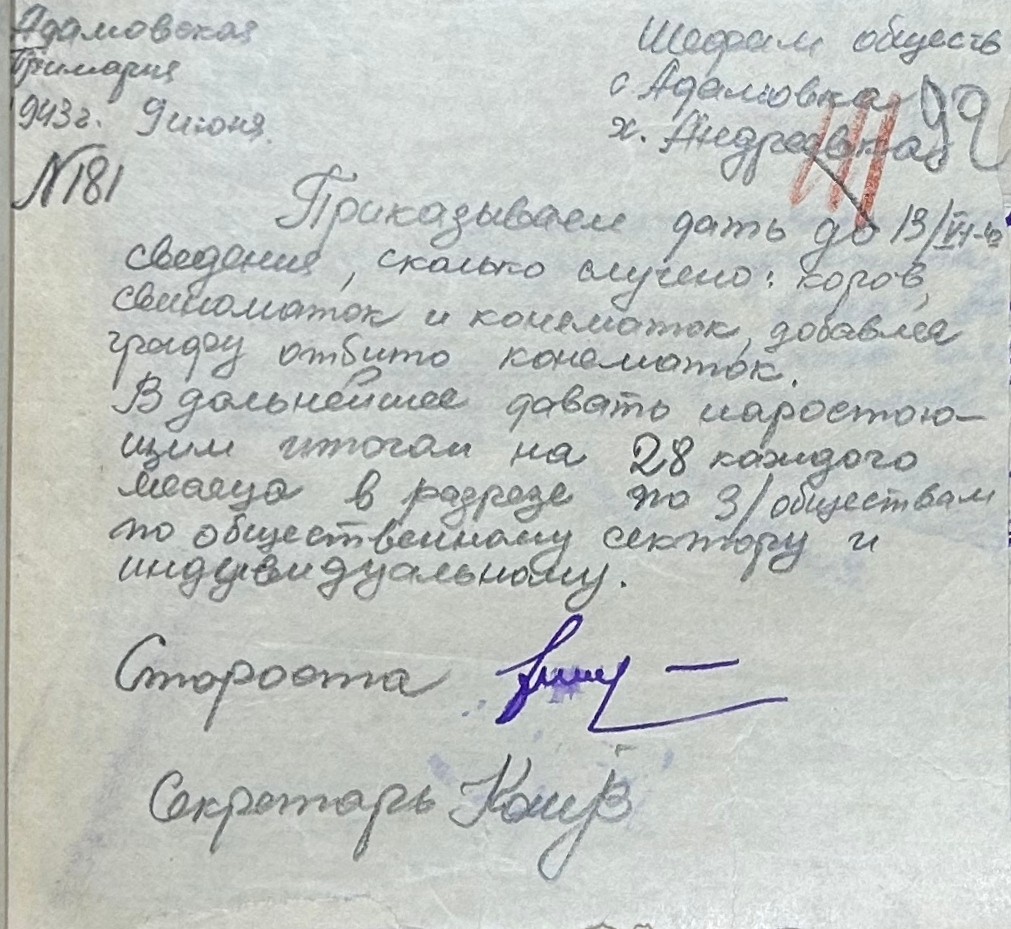 Адамовская
Примария
1943 г. 9 июня.
№181
Шефам обществ
с. Адамовка
х. Андреевка
92
Приказываем дать до 13/VI-43
сведения, сколько случено: коров,
свиноматок и конематок, добавляя
графу отбито конематок.
В дальнейшее давать наростою-
щим итогам на 28 каждого
месяца в разрезе по З/обществам
по общественному сектору и
индувидуальному.
Староста
Секретарь